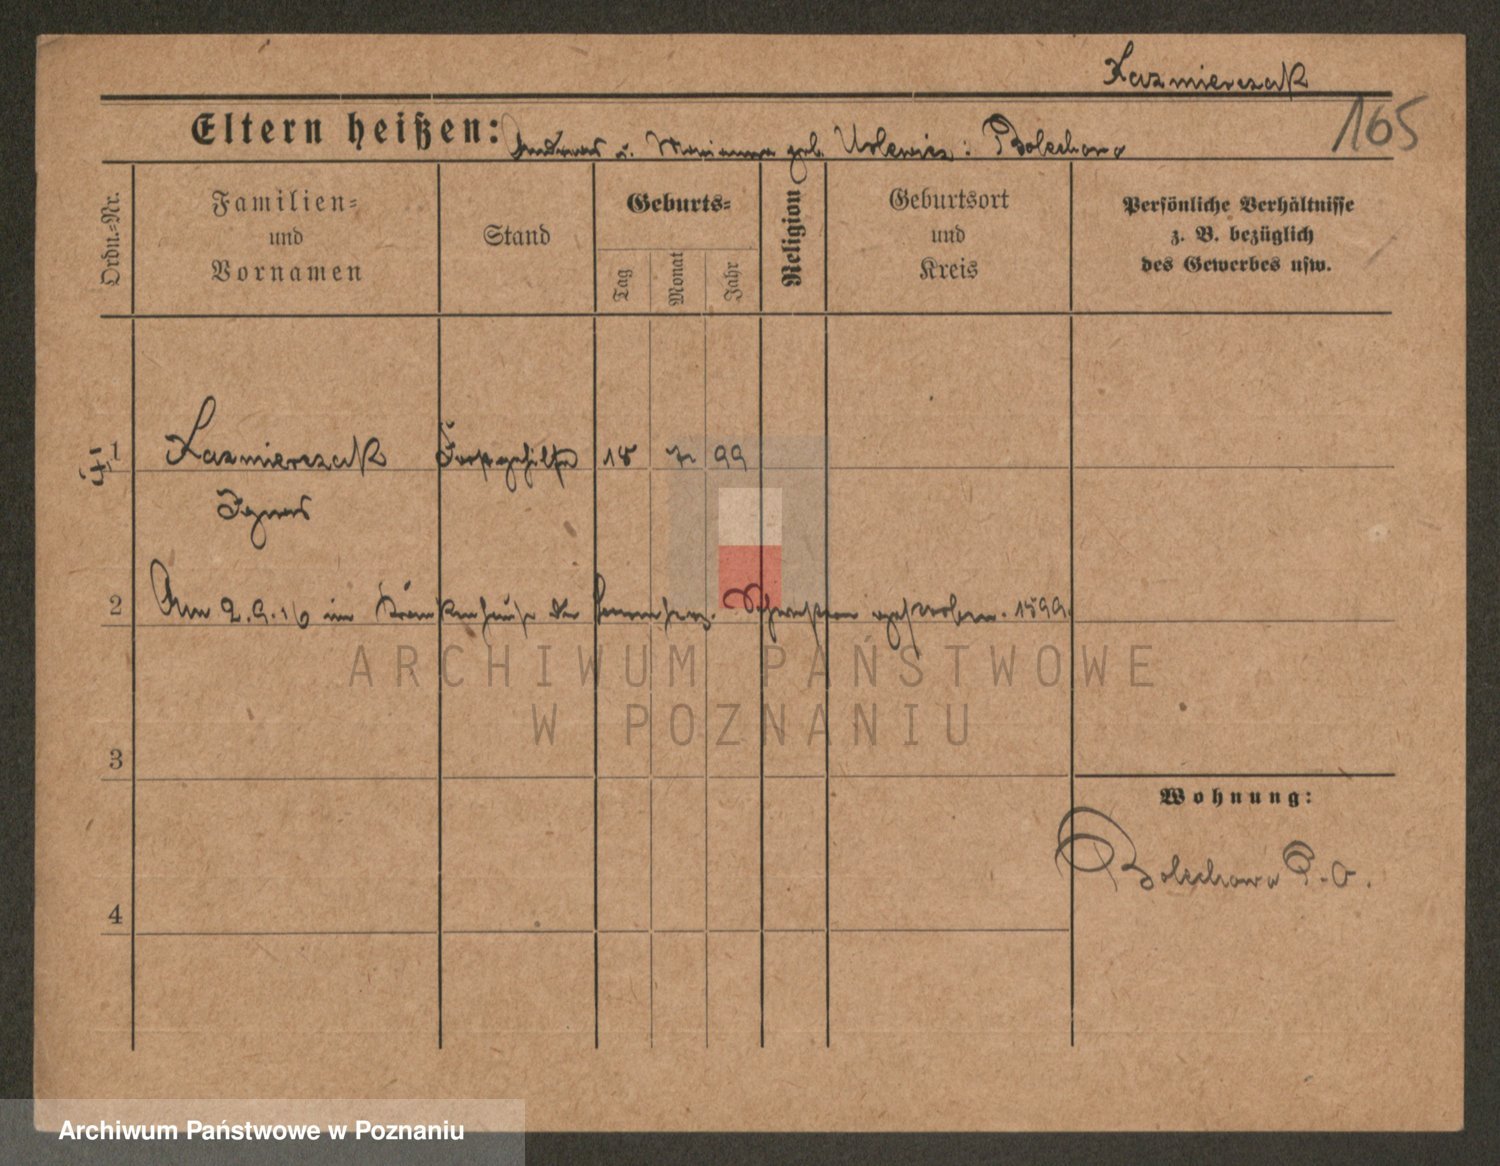 Kazmierczak
165
Eltern heißen: Andreas u. Marianna geb. : Bolechowo
Ordn.-Nr.
Familien-
und
Vornamen
Stand
Geburts-
Tag
Monat
Jahr
Religion
Geburtsort
und
Kreis
Persönliche Verhältnisse
z. B. bezüglich
des Gewerbes usw.
1 Kazmierczak Forstgehilfe 18 7 99
Ignas
2 Am 2.9.16 im Krankenhause der barmherz. Schwestern gestorben. 1899.
ARCHIWUM PAŃSTWOWE
W POZNANIU
3
Wohnung:
Bolechowo P.-O.
4
Archiwum Państwowe w Poznaniu